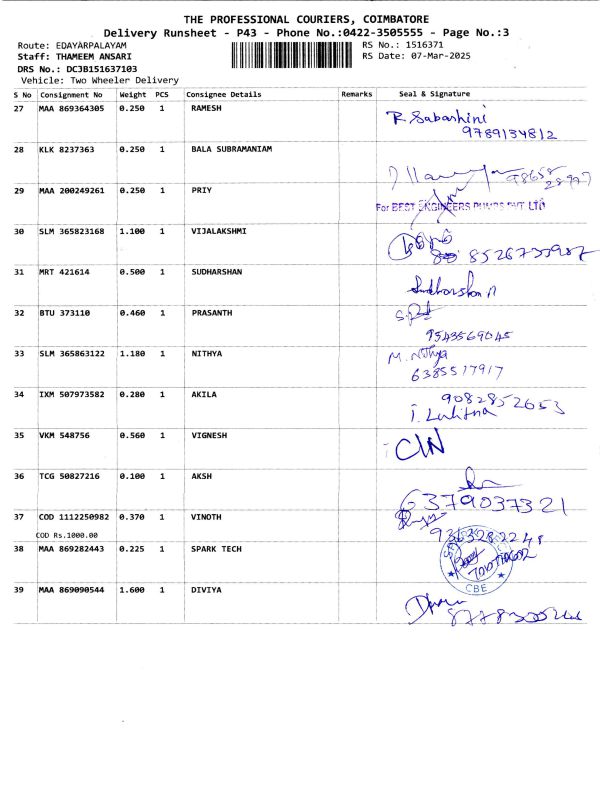 THE PROFESSIONAL COURIERS, COIMBATORE
Delivery Runsheet - P43 - Phone No.:0422-3505555 - Page No.:3
Route: EDAYARPALAYAM RS No.: 1516371
Staff: THAMEEM ANSARI RS Date: 07-Mar-2025
DRS No.: DCJB151637103
Vehicle: Two Wheeler Delivery
S No Consignment No Weight PCS Consignee Details Remarks Seal & Signature
27 MAA 869364305 0.250 1 RAMESH R. Sabashini
9789134812
28 KLK 8237363 0.250 1 BALA SUBRAMANIAM
29 MAA 200249261 0.250 1 PRIY
For BEST ENGINEERS PUMPS PVT LTD
30 SLM 365823168 1.100 1 VIJALAKSHMI
31 MRT 421614 0.500 1 SUDHARSHAN Sudharshan
32 BTU 373110 0.460 1 PRASANTH
9543569045
33 SLM 365863122 1.180 1 NITHYA M. Nithya
6385517917
34 IXM 507973582 0.280 1 AKILA 9082852653
35 VKM 548756 0.560 1 VIGNESH
36 TCG 50827216 0.100 1 AKSH
6379037321
37 COD 1112250982 0.370 1 VINOTH
COD Rs.1000.00 9363282248
38 MAA 869282443 0.225 1 SPARK TECH
CBE
39 MAA 869090544 1.600 1 DIVIYA